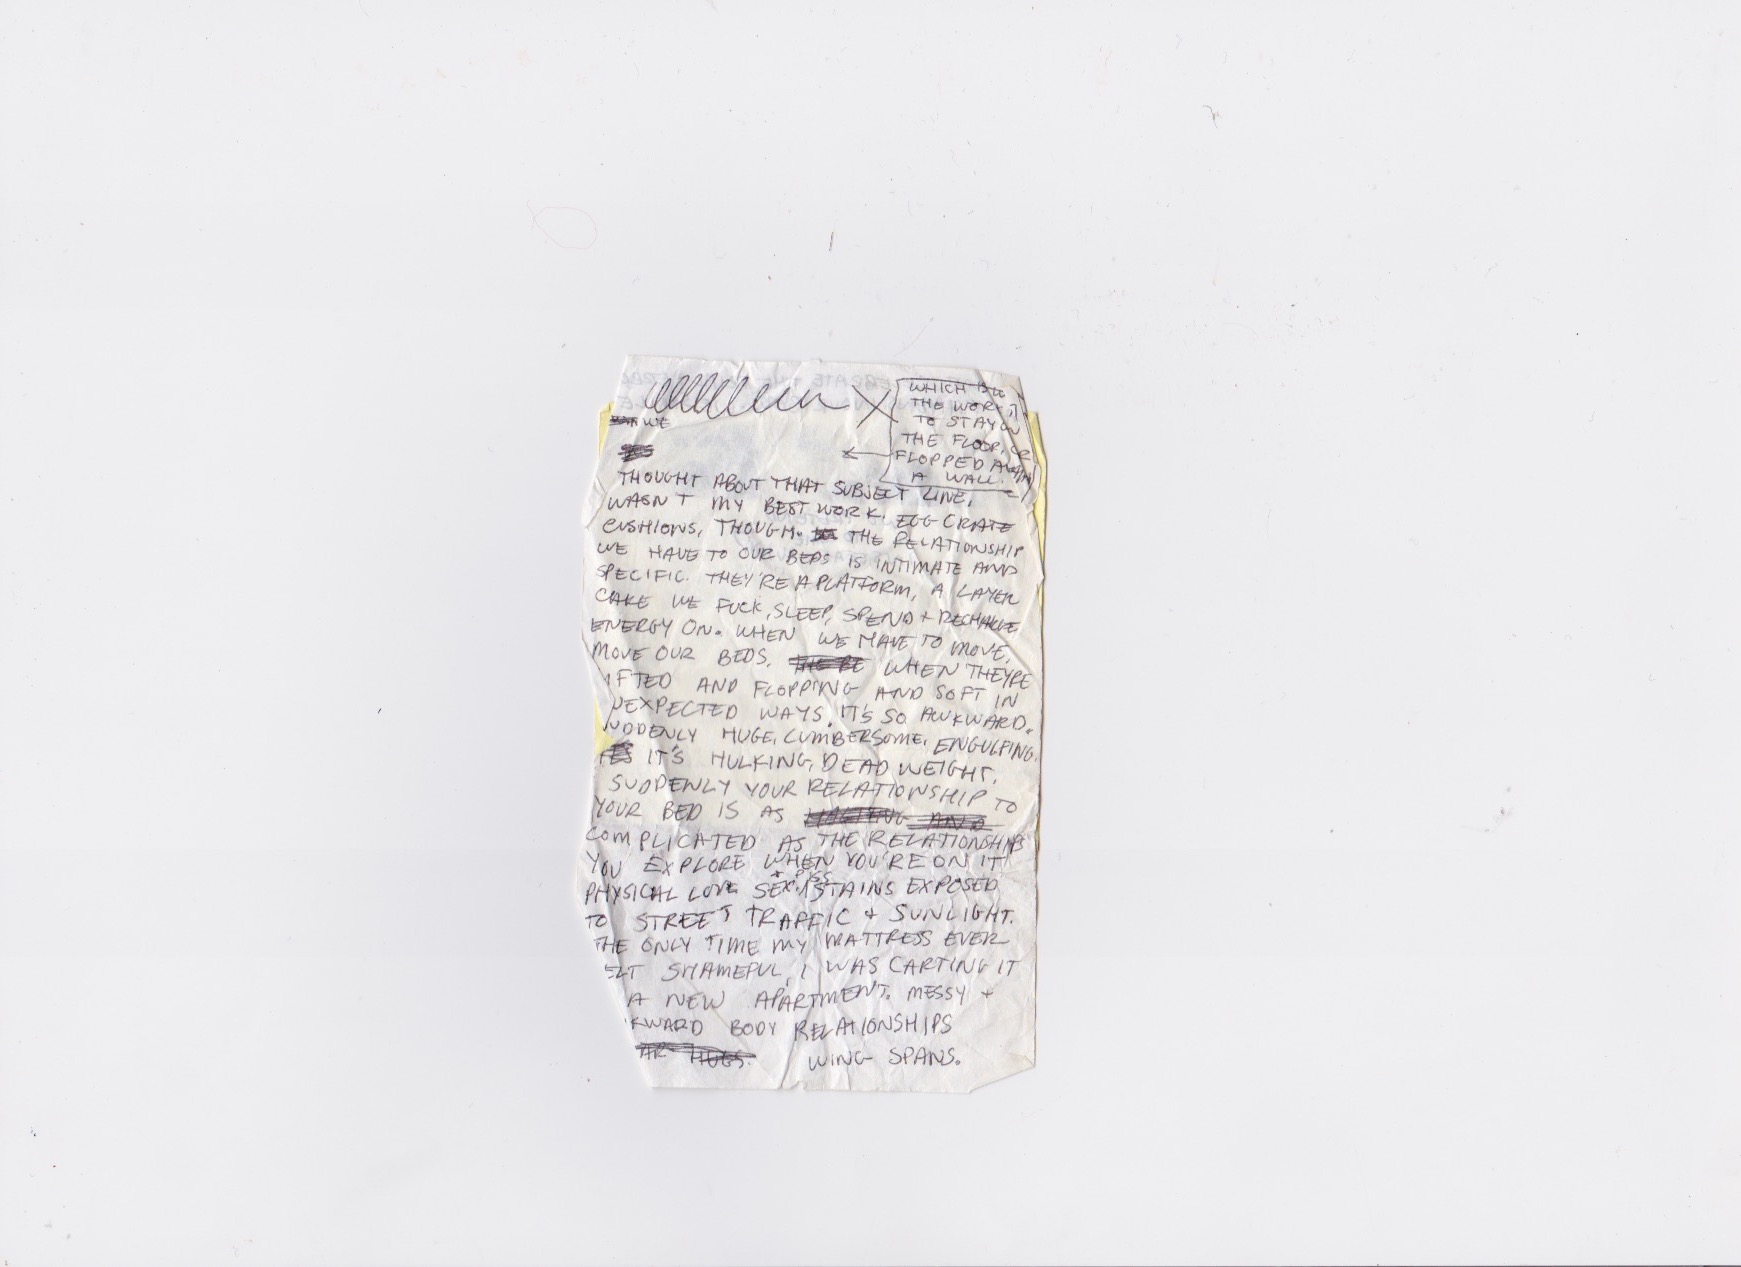 WE
WHICH IS
THE WORK,
TO STAY ON
THE FLOOR, OR
FLOPPED
A WALL.
THOUGHT ABOUT THAT SUBJECT LINE,
WASN'T MY BEST WORK. EGG CRATE
CUSHIONS, THOUGH. THE RELATIONSHIP
WE HAVE TO OUR BEDS IS INTIMATE AND
SPECIFIC. THEY'RE A PLATFORM, A LAYER
CAKE WE FUCK, SLEEP, SPEND + RECHARGE
ENERGY ON. WHEN WE HAVE TO MOVE,
MOVE OUR BEDS. WHEN THEY'RE
IFTED AND FLOPPING AND SOFT IN
NEXPECTED WAYS, IT'S SO AWKWARD.
UDDENLY HUGE, CUMBERSOME, ENGULFING.
IT'S HULKING, DEAD WEIGHT.
SUDDENLY YOUR RELATIONSHIP TO
YOUR BED IS AS
COMPLICATED AS THE RELATIONSHIPS
YOU EXPLORE WHEN YOU'RE ON IT
PHYSICAL LOVE SEX + PISS STAINS EXPOSED
TO STREET TRAFFIC + SUNLIGHT.
THE ONLY TIME MY MATTRESS EVER
ELT SHAMEFUL, I WAS CARTING IT
A NEW APARTMENT. MESSY +
KWARD BODY RELATIONSHIPS
WING SPANS.